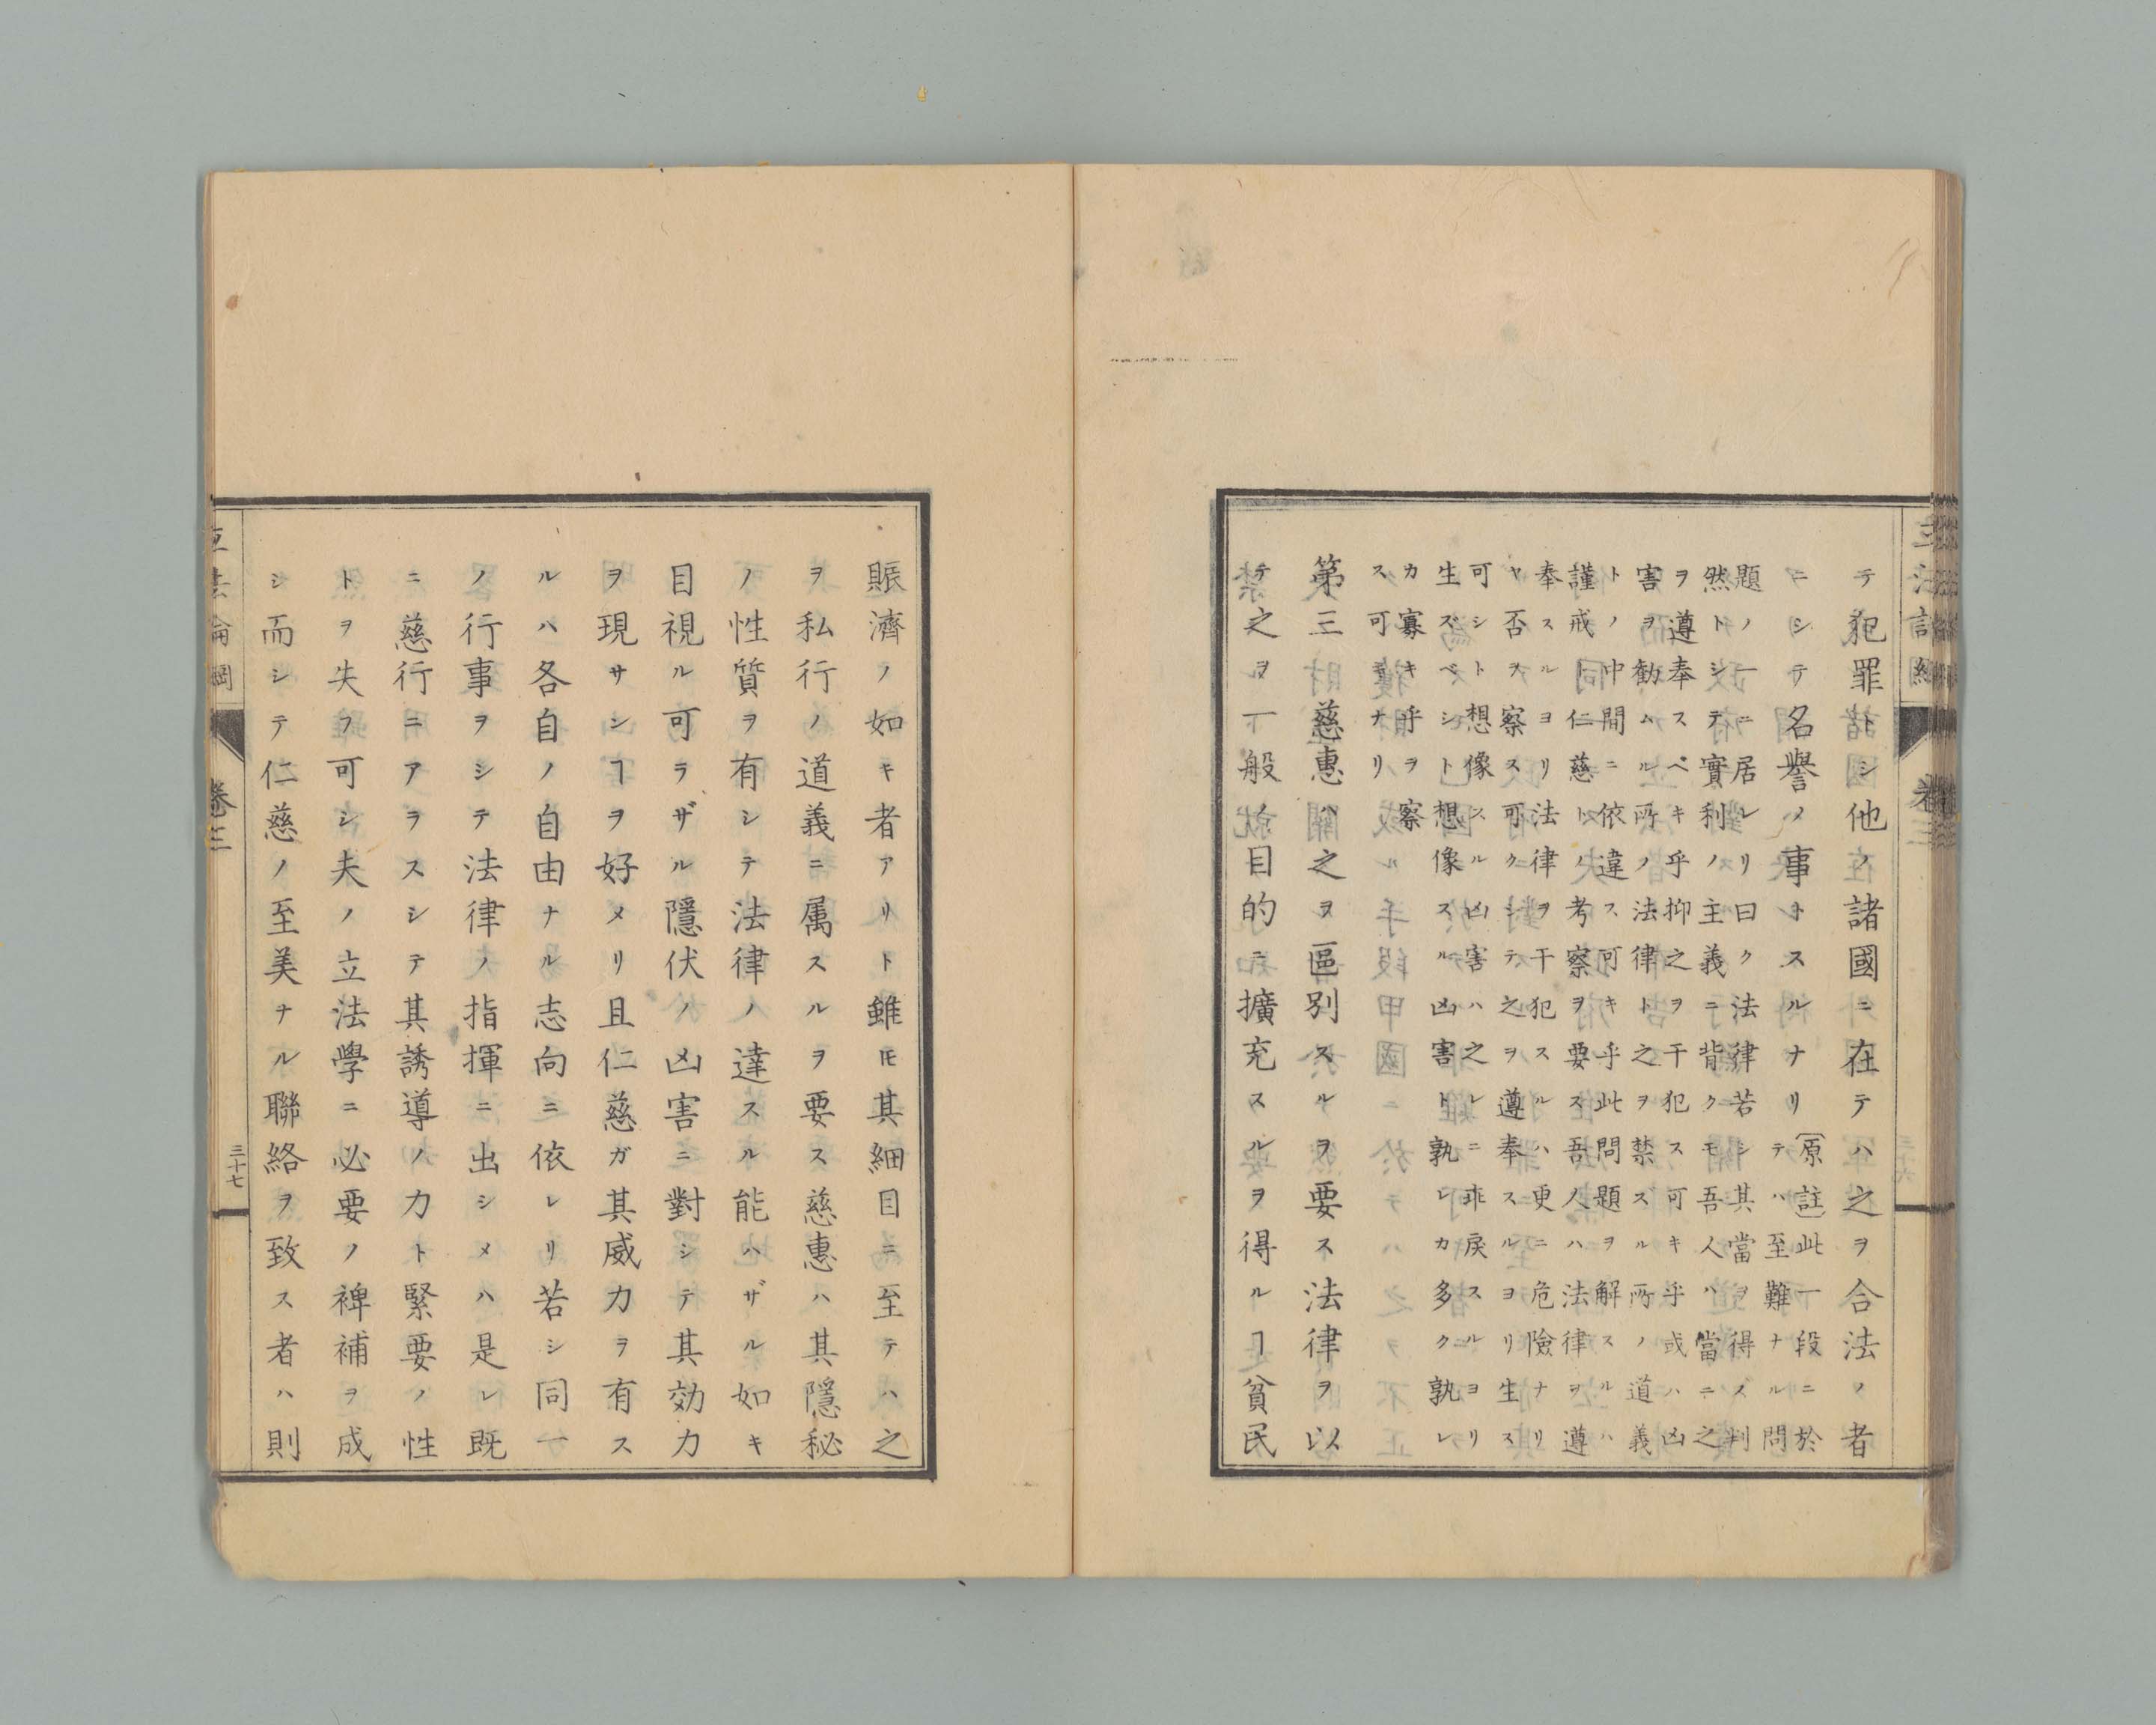 テ犯罪トシ他ノ諸國ニ在テハ之ヲ合法ノ者
ニシテ名譽ノ事トスルナリ
(原註)此一段ニ於
テハ至難ナル問
題ノ一ニ居レリ曰ク法律若シ其當ヲ得ス判
然トシテ實利ノ主義ニ背クモ吾人ハ當ニ之
ヲ遵奉スベキ乎抑之ヲ干犯ス可キ乎或ハ凶
害ヲ勧ムル所ノ法律ト之ヲ禁スル所ノ道義
トノ中間ニ依違ス可キ乎此問題ヲ解スルハ
謹戒仁慈トノ考察ヲ要ス吾人ハ法律ヲ遵
奉スルヨリ法律ヲ干犯スルハ更ニ危険ナリ
ヤ否ヲ察ス可クシテ之ヲ遵奉スルヨリ生ス
可シト想像スル凶害ハ之レニ乖戻スルヨリ
生ズベシト想像スル凶害ト孰レカ多ク孰レ
カ寡キ乎ヲ察
ス可キナリ
第三慈惠ハ之ヲ區別スルヲ要ス法律ヲ以
テ之ヲ一般ノ目的ニ擴充スルヲ得ルヿ貧民
賑濟ノ如キ者アリト雖𪜈其細目ニ至テハ之
ヲ私行ノ道義ニ属スルヲ要ス慈惠ハ其隱秘
ノ性質ヲ有シテ法律ノ達スル能ハザル如キ
目視ル可ラザル隱伏ノ凶害ニ對シテ其効力
ヲ現サシヿヲ好メリ且仁慈ガ其威力ヲ有ス
ルハ各自ノ自由ナル志向ニ依レリ若シ同一
ノ行事ヲシテ法律ノ指揮ニ出シメハ是レ既
ニ慈行ニアラスシテ其誘導ノ力ト緊要ノ性
トヲ失フ可シ夫ノ立法學ニ必要ノ裨補ヲ成
シ而シテ仁慈ノ至美ナル聯絡ヲ致ス者ハ則
卷三
三十七